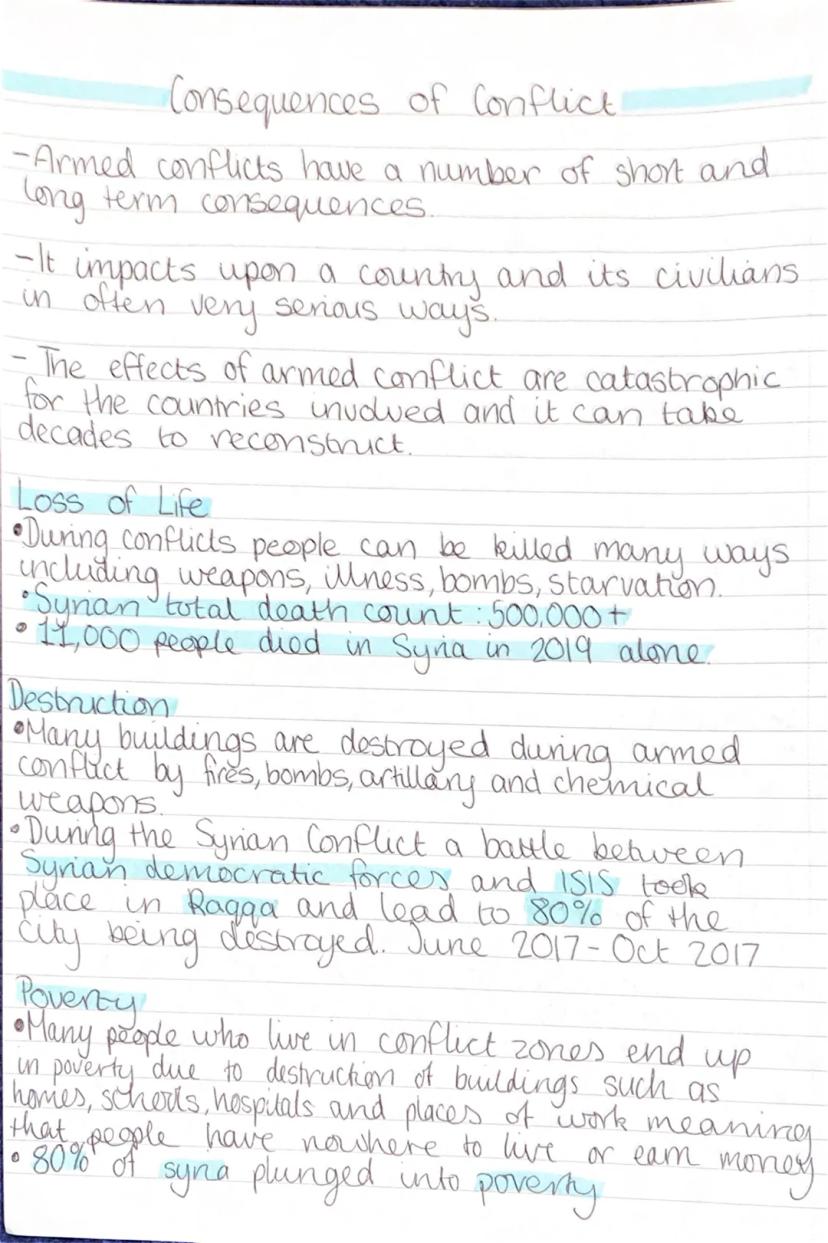 Consequences of Conflict
-Armed conflicts have a number of short and
long term consequences.
-It impacts upon a country and its civilians
in often very serious ways.
- The effects of armed conflict are catastrophic
for the countries involved and it can take
decades to reconstruct.
Loss of Life
•During conflicts people can be killed many ways
including weapons, illness, bombs, starvation.
•Syrian total death count : 500,000+
• 11,000 people died in Syria in 2019 alone.
Destruction
•Many buildings are destroyed during armed
conflict by fires, bombs, artillary and chemical
weapons.
•During the Syrian Conflict a battle between
Syrian democratic forces and ISIS took
place in Raqqa and lead to 80% of the
city being destroyed. June 2017 - Oct 2017
Poverty
•Many people who live in conflict zones end up
in poverty due to destruction of buildings such as
homes, schools, hospitals and places of work meaning
that people have nowhere to live or earn money
• 80% of syria plunged into poverty